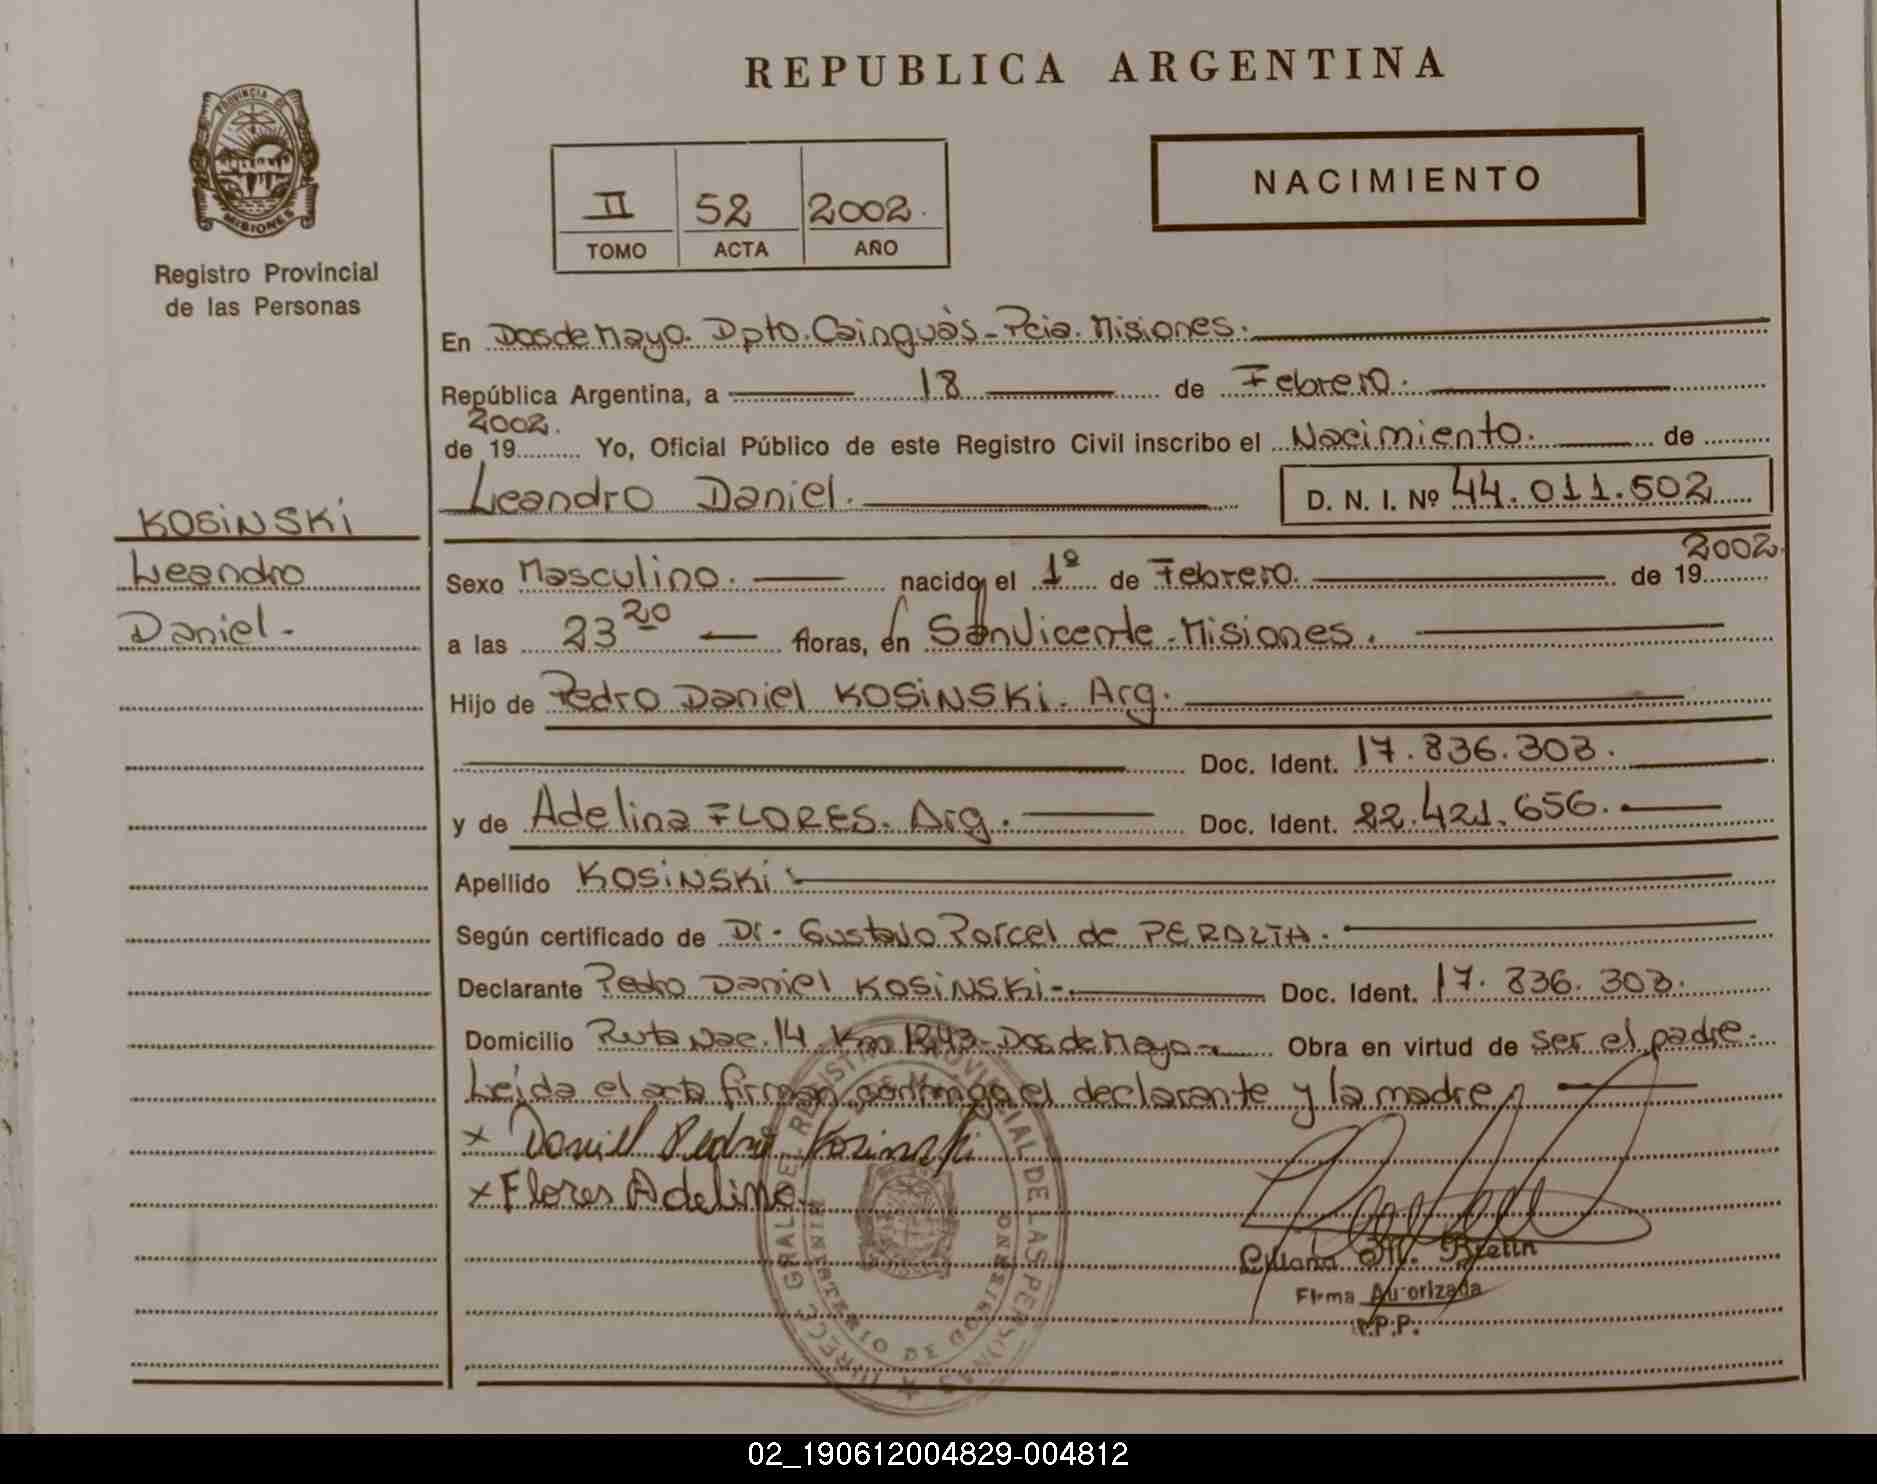 REPUBLICA ARGENTINA
PROVINCIA DE
MISIONES
Registro Provincial
de las Personas
NACIMIENTO
II 52 2002.
TOMO ACTA AÑO
En Dos de Mayo. Dpto. Cainguás - Pcia. Misiones.
República Argentina, a 18 de Febrero.
2002.
de 19 Yo, Oficial Público de este Registro Civil inscribo el Nacimiento. de
Leandro Daniel. D. N. I. Nº 44.011.502
KOSINSKI
Leandro
Daniel.-
2002.
Sexo Masculino. nacido el 1º de Febrero. de 19
a las 23 20 horas, en San Vicente - Misiones.
Hijo de Pedro Daniel KOSINSKI. Arg.
Doc. Ident. 17.836.303.
y de Adelina FLORES. Arg. Doc. Ident. 22.421.656.
Apellido KOSINSKI
Según certificado de Dr. Gustavo Porcel de PERALTA.
Declarante Pedro Daniel KOSINSKI- Doc. Ident. 17.836.303.
Domicilio Ruta Nac. 14 Km 1243- Dos de Mayo- Obra en virtud de ser el padre.
Leída el acta firman conmigo el declarante y la madre
x Daniel Pedro Kosinski
x Flores Adelina
DIRECC. GRAL DEL REGISTRO PROVINCIAL DE LAS PERSONAS
MINISTERIO DE GOBIERNO
M. Bretin
Firma Autorizada
R.P.P.
02_190612004829-004812